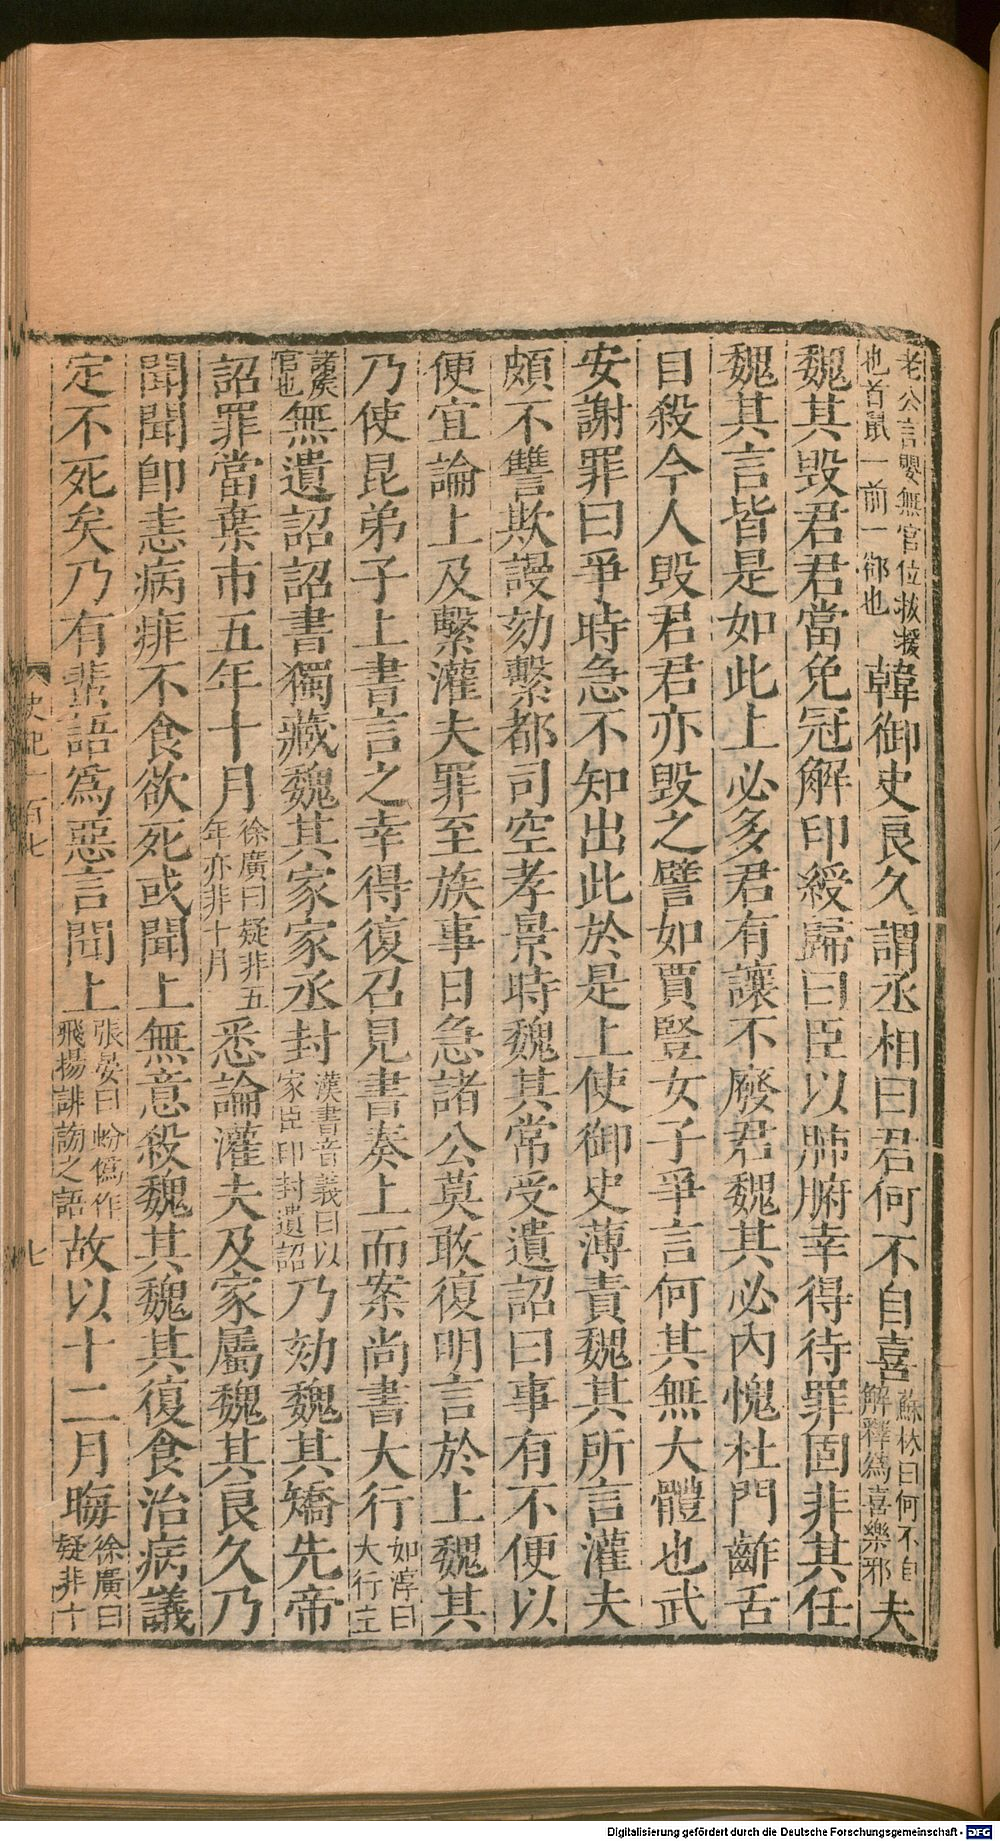 老公言嬰無官位扳援也首鼠一前一郤也韓御史良久謂丞相曰君何不自喜蘇林曰何不自解釋爲喜樂邪夫
魏其毀君君當免冠解印綬歸曰臣以肺腑幸得待罪固非其任
魏其言皆是如此上必多君有讓不廢君魏其必內愧杜門齰舌
自殺今人毀君君亦毀之譬如賈豎女子爭言何其無大體也武
安謝罪曰爭時急不知出此於是上使御史薄責魏其所言灌夫
頗不讐欺謾劾繫都司空孝景時魏其常受遺詔曰事有不便以
便宜論上及繫灌夫罪至族事日急諸公莫敢復明言於上魏其
乃使昆弟子上書言之幸得復召見書奏上而案尚書大行如淳曰大行主
諸侯官也無遺詔詔書獨藏魏其家家丞封漢書音義曰以家臣印封遺詔乃劾魏其矯先帝
詔罪當棄市五年十月徐廣曰疑非五年亦非十月悉論灌夫及家屬魏其良久乃
聞聞卽恚病痱不食欲死或聞上無意殺魏其魏其復食治病議
定不死矣乃有蜚語爲惡言聞上張晏曰蚡僞作飛揚誹謗之語故以十二月晦徐廣曰疑非十
史記一百七
七
Digitalisierung gefördert durch die Deutsche Forschungsgemeinschaft - DFG